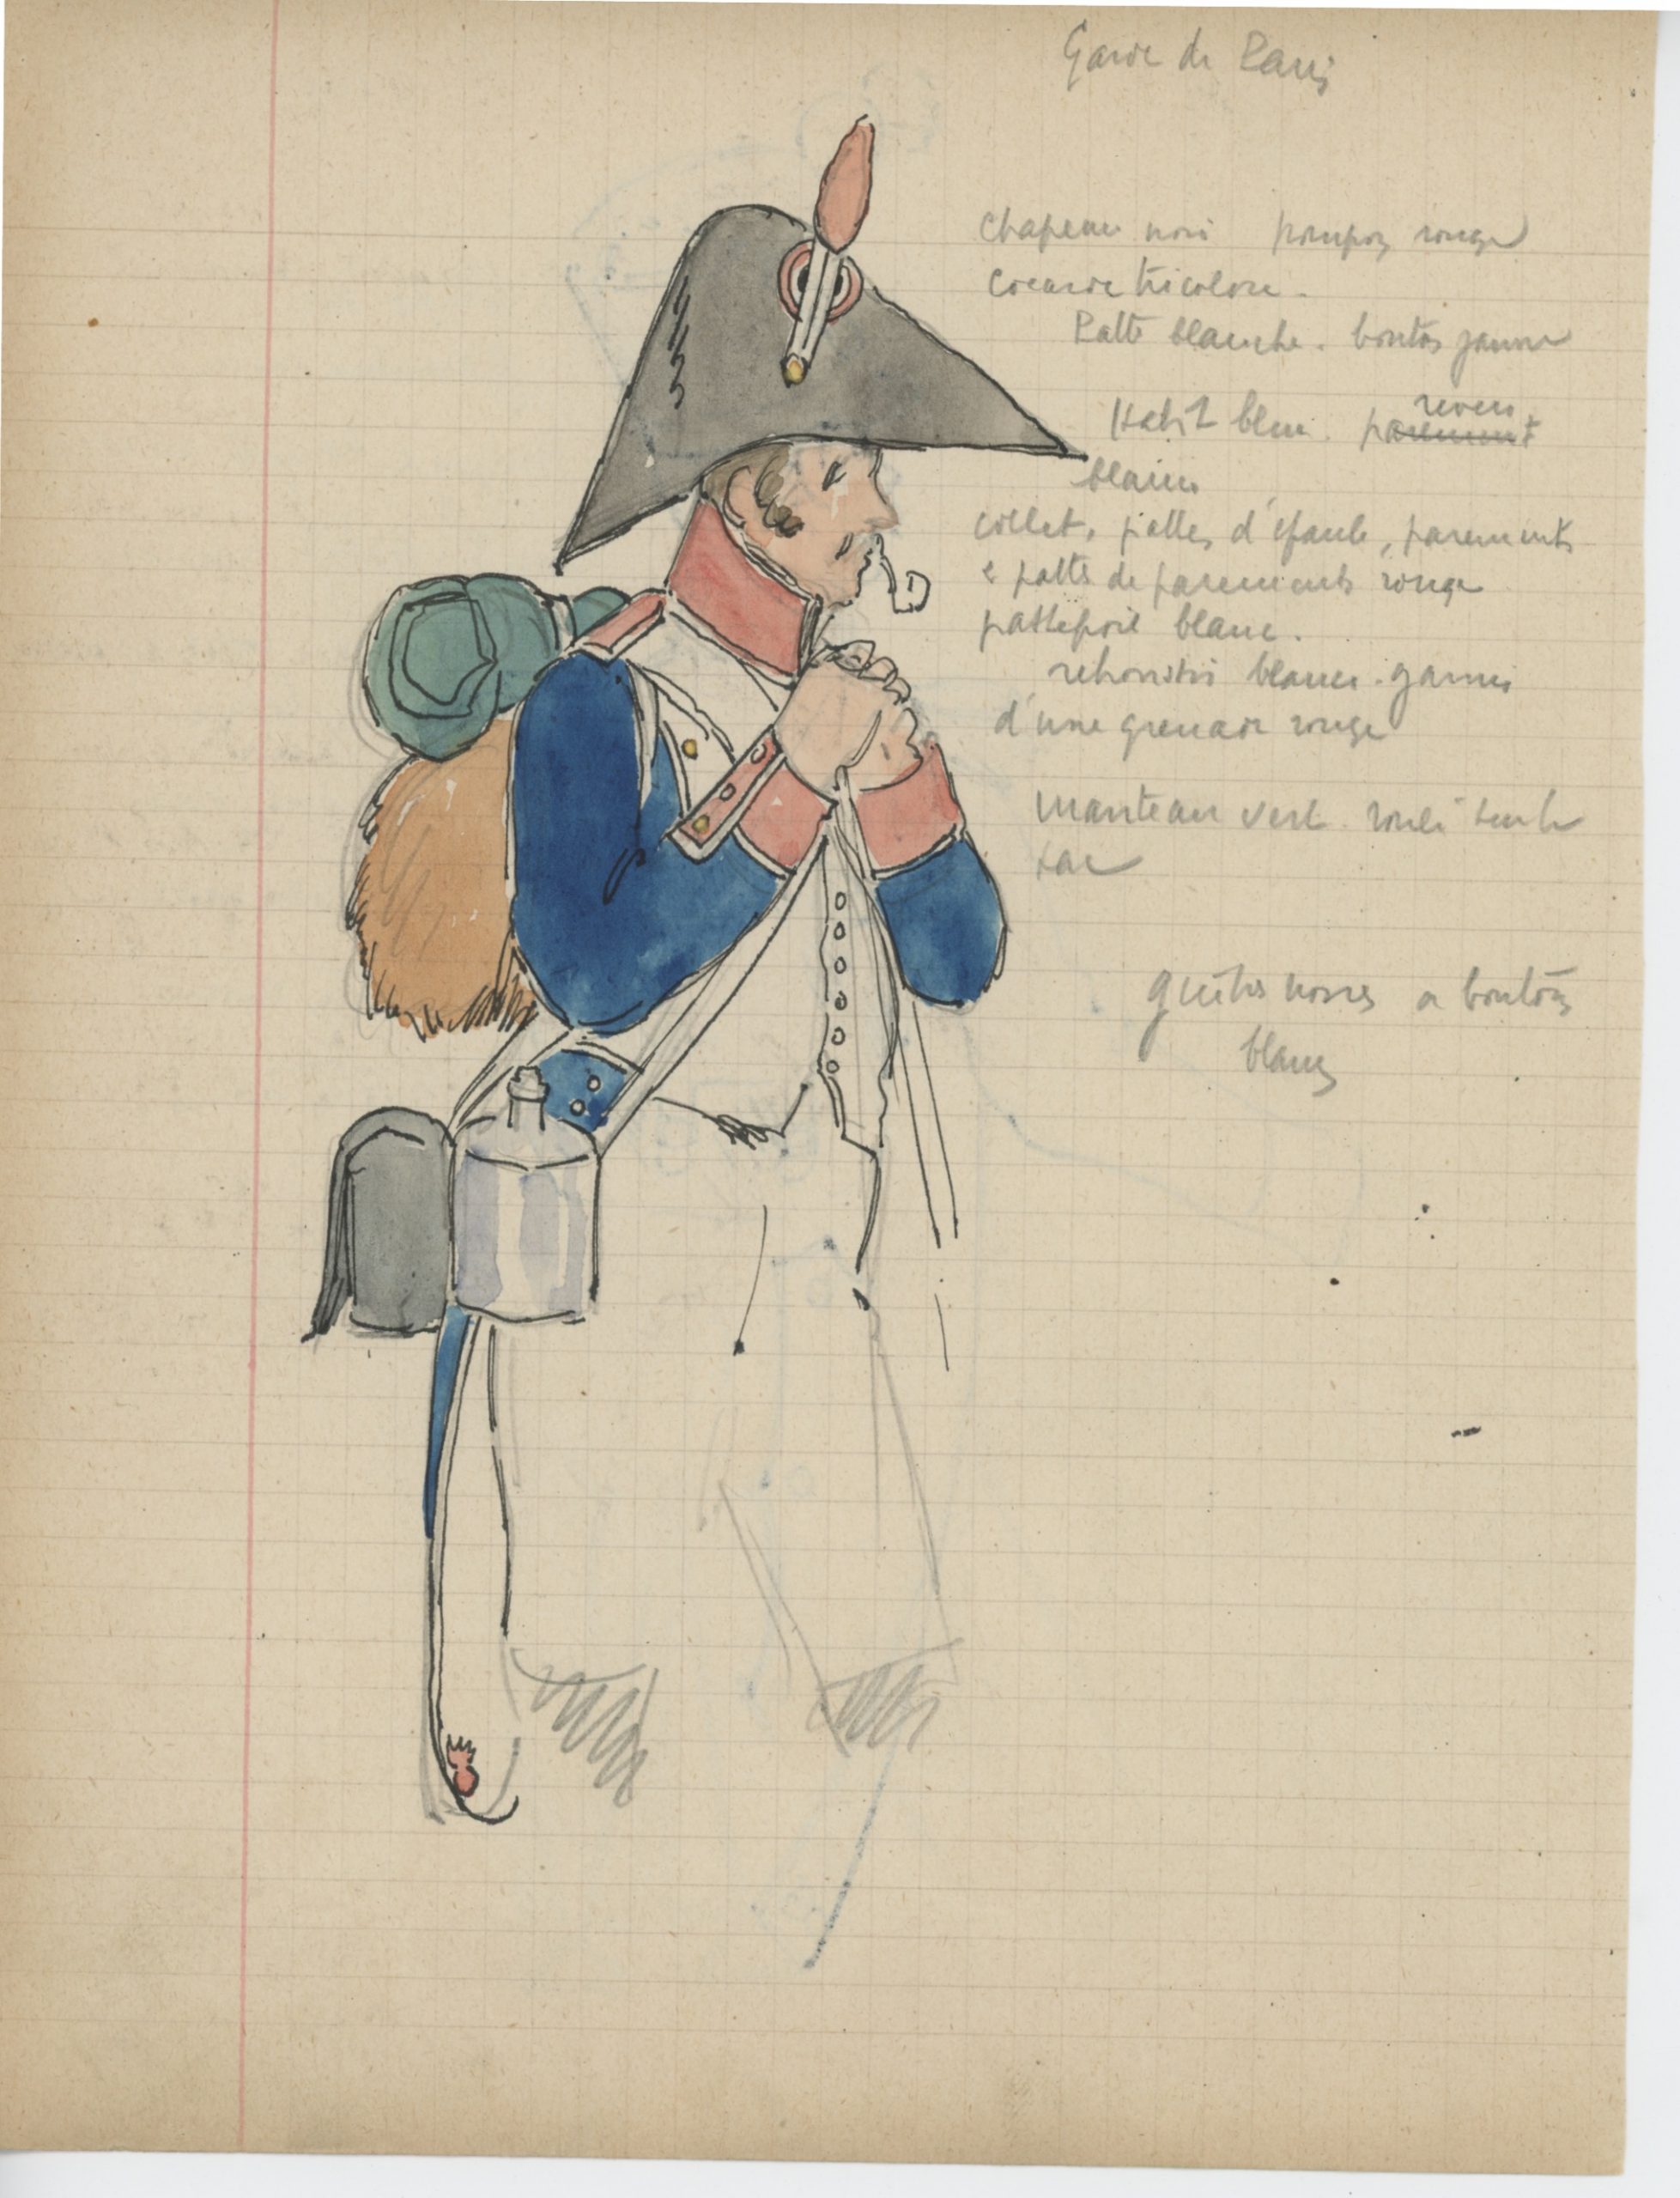 Garde de Paris
Chapeau noir pompon rouge
Cocarde tricolore.
Patte blanche. bouton jaune
Habit bleu. parement revers
blancs
collet, pattes d'épaule, parements
& pattes de parements rouge
passepoil blanc.
retroussis blancs. garnis
d'une grenade rouge
Manteau vert roulé sur le
sac
guêtres noires a boutons
blancs